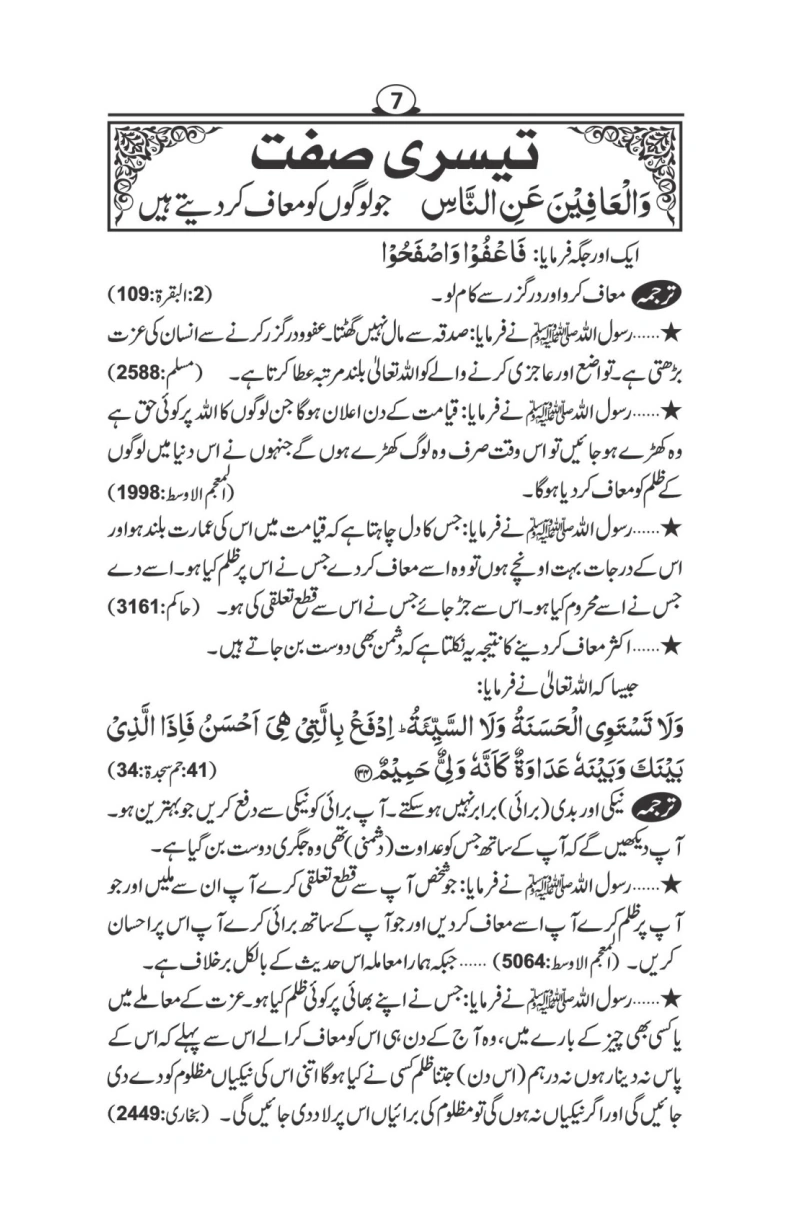 7
تیسری صفت
وَالْعَافِیْنَ عَنِ النَّاسِ جو لوگوں کو معاف کر دیتے ہیں
ایک اور جگہ فرمایا: فَاعْفُوْا وَاصْفَحُوْا
ترجمہ معاف کرو اور درگزر سے کام لو۔ (2:البقرۃ:109)
★......رسول اللہ ﷺ نے فرمایا: صدقہ سے مال نہیں گھٹتا۔ عفو و درگزر کرنے سے انسان کی عزت
بڑھتی ہے۔ تواضع اور عاجزی کرنے والے کو اللہ تعالیٰ بلند مرتبہ عطا کرتا ہے۔ (مسلم:2588)
★......رسول اللہ ﷺ نے فرمایا: قیامت کے دن اعلان ہوگا جن لوگوں کا اللہ پر کوئی حق ہے
وہ کھڑے ہو جائیں تو اس وقت صرف وہ لوگ کھڑے ہوں گے جنہوں نے اس دنیا میں لوگوں
کے ظلم کو معاف کر دیا ہوگا۔ (المعجم الاوسط:1998)
★......رسول اللہ ﷺ نے فرمایا: جس کا دل چاہتا ہے کہ قیامت میں اس کی عمارت بلند ہو اور
اس کے درجات بہت اونچے ہوں تو وہ اسے معاف کر دے جس نے اس پر ظلم کیا ہو۔ اسے دے
جس نے اسے محروم کیا ہو۔ اس سے جڑ جائے جس نے اس سے قطع تعلقی کی ہو۔ (حاکم:3161)
★......اکثر معاف کر دینے کا نتیجہ یہ نکلتا ہے کہ دشمن بھی دوست بن جاتے ہیں۔
جیسا کہ اللہ تعالیٰ نے فرمایا:
وَلَا تَسْتَوِی الْحَسَنَةُ وَلَا السَّيِّئَةُ ؕ اِدْفَعْ بِالَّتِیْ هِیَ اَحْسَنُ فَاِذَا الَّذِیْ
بَيْنَكَ وَبَيْنَهٗ عَدَاوَةٌ كَاَنَّهٗ وَلِیٌّ حَمِيْمٌ ﴿۳۴﴾ (41:حٰم سجدۃ:34)
ترجمہ نیکی اور بدی (برائی) برابر نہیں ہو سکتے۔ آپ برائی کو نیکی سے دفع کریں جو بہترین ہو۔
آپ دیکھیں گے کہ آپ کے ساتھ جس کو عداوت (دشمنی) تھی وہ جگری دوست بن گیا ہے۔
★......رسول اللہ ﷺ نے فرمایا: جو شخص آپ سے قطع تعلقی کرے آپ ان سے ملیں اور جو
آپ پر ظلم کرے آپ اسے معاف کر دیں اور جو آپ کے ساتھ برائی کرے آپ اس پر احسان
کریں۔ (المعجم الاوسط:5064) ......جبکہ ہمارا معاملہ اس حدیث کے بالکل برخلاف ہے۔
★......رسول اللہ ﷺ نے فرمایا: جس نے اپنے بھائی پر کوئی ظلم کیا ہو۔ عزت کے معاملے میں
یا کسی بھی چیز کے بارے میں، وہ آج کے دن ہی اس کو معاف کرالے اس سے پہلے کہ اس کے
پاس نہ دینار ہوں نہ درہم (اس دن) جتنا ظلم کسی نے کیا ہوگا اتنی اس کی نیکیاں مظلوم کو دے دی
جائیں گی اور اگر نیکیاں نہ ہوں گی تو مظلوم کی برائیاں اس پر لاد دی جائیں گی۔ (بخاری:2449)